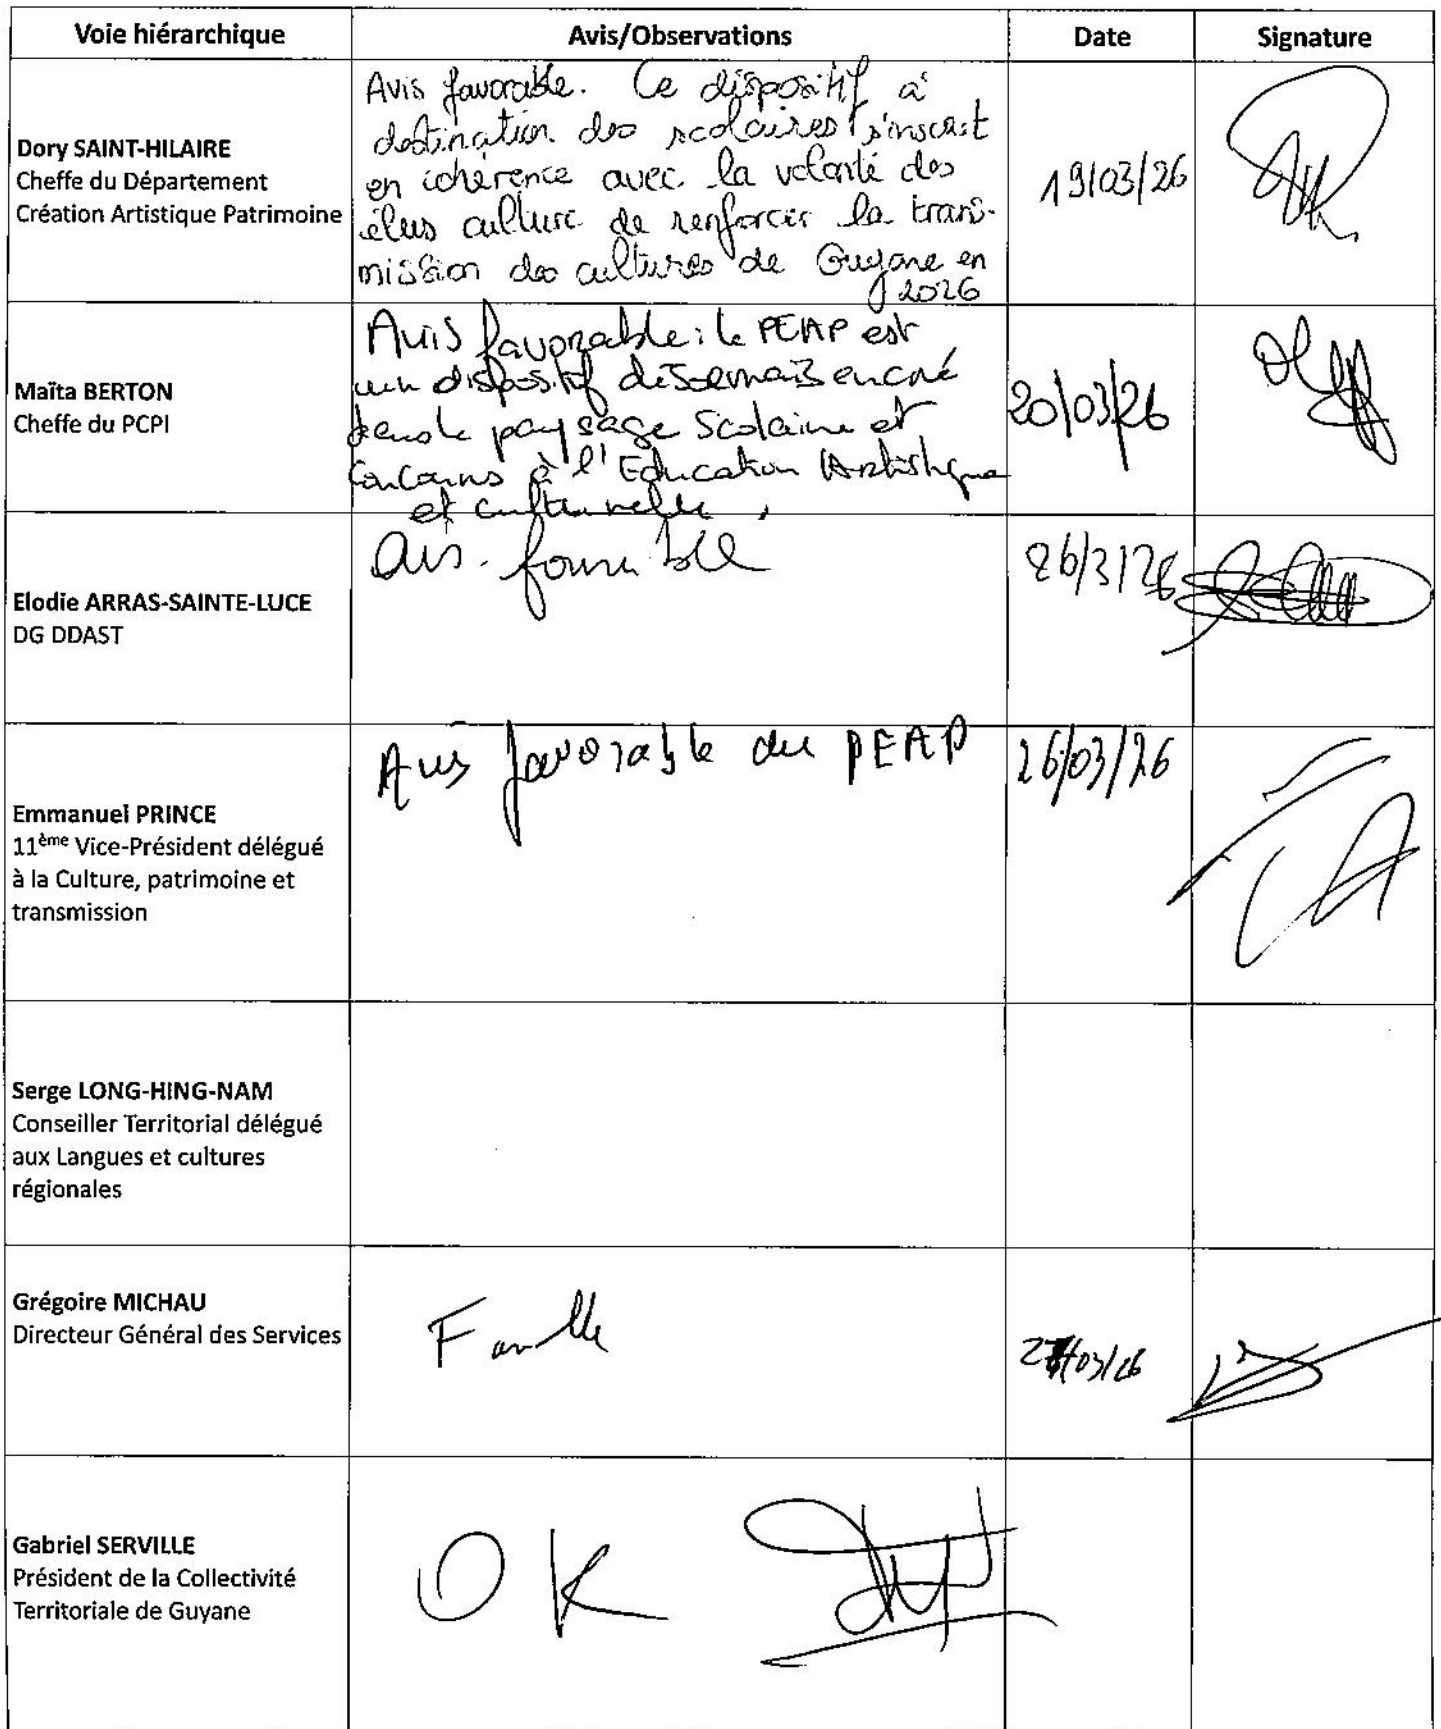 Voie hiérarchique Avis/Observations Date Signature
Dory SAINT-HILAIRE
Cheffe du Département
Création Artistique Patrimoine
Avis favorable. Ce dispositif à
destination des scolaires s'inscrit
en cohérence avec la volonté des
élus culture de renforcer la trans-
mission des cultures de Guyane en
2026
19/03/26
Maïta BERTON
Cheffe du PCPI
Avis favorable : le PEAP est
un dispositif désormais encré
dans le paysage Scolaire et
concourns à l'Education Artistique
et culturelle.
20/03/26
Elodie ARRAS-SAINTE-LUCE
DG DDAST
avis favorable
26/3/26
Emmanuel PRINCE
11ème Vice-Président délégué
à la Culture, patrimoine et
transmission
Avis favorable du PEAP
26/03/26
Serge LONG-HING-NAM
Conseiller Territorial délégué
aux Langues et cultures
régionales
Grégoire MICHAU
Directeur Général des Services
27/03/26
Gabriel SERVILLE
Président de la Collectivité
Territoriale de Guyane
OK